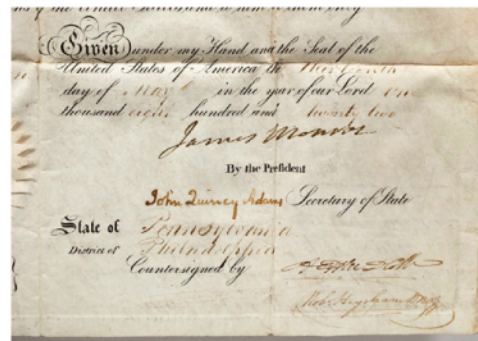 of the United States
Given under my Hand and the Seal of the
United States of America the
day of May in the year of our Lord one
thousand eight hundred and twenty two
James Monroe
By the President
John Quincy Adams Secretary of State
State of Pennsylvania
District of Philadelphia
Countersigned by